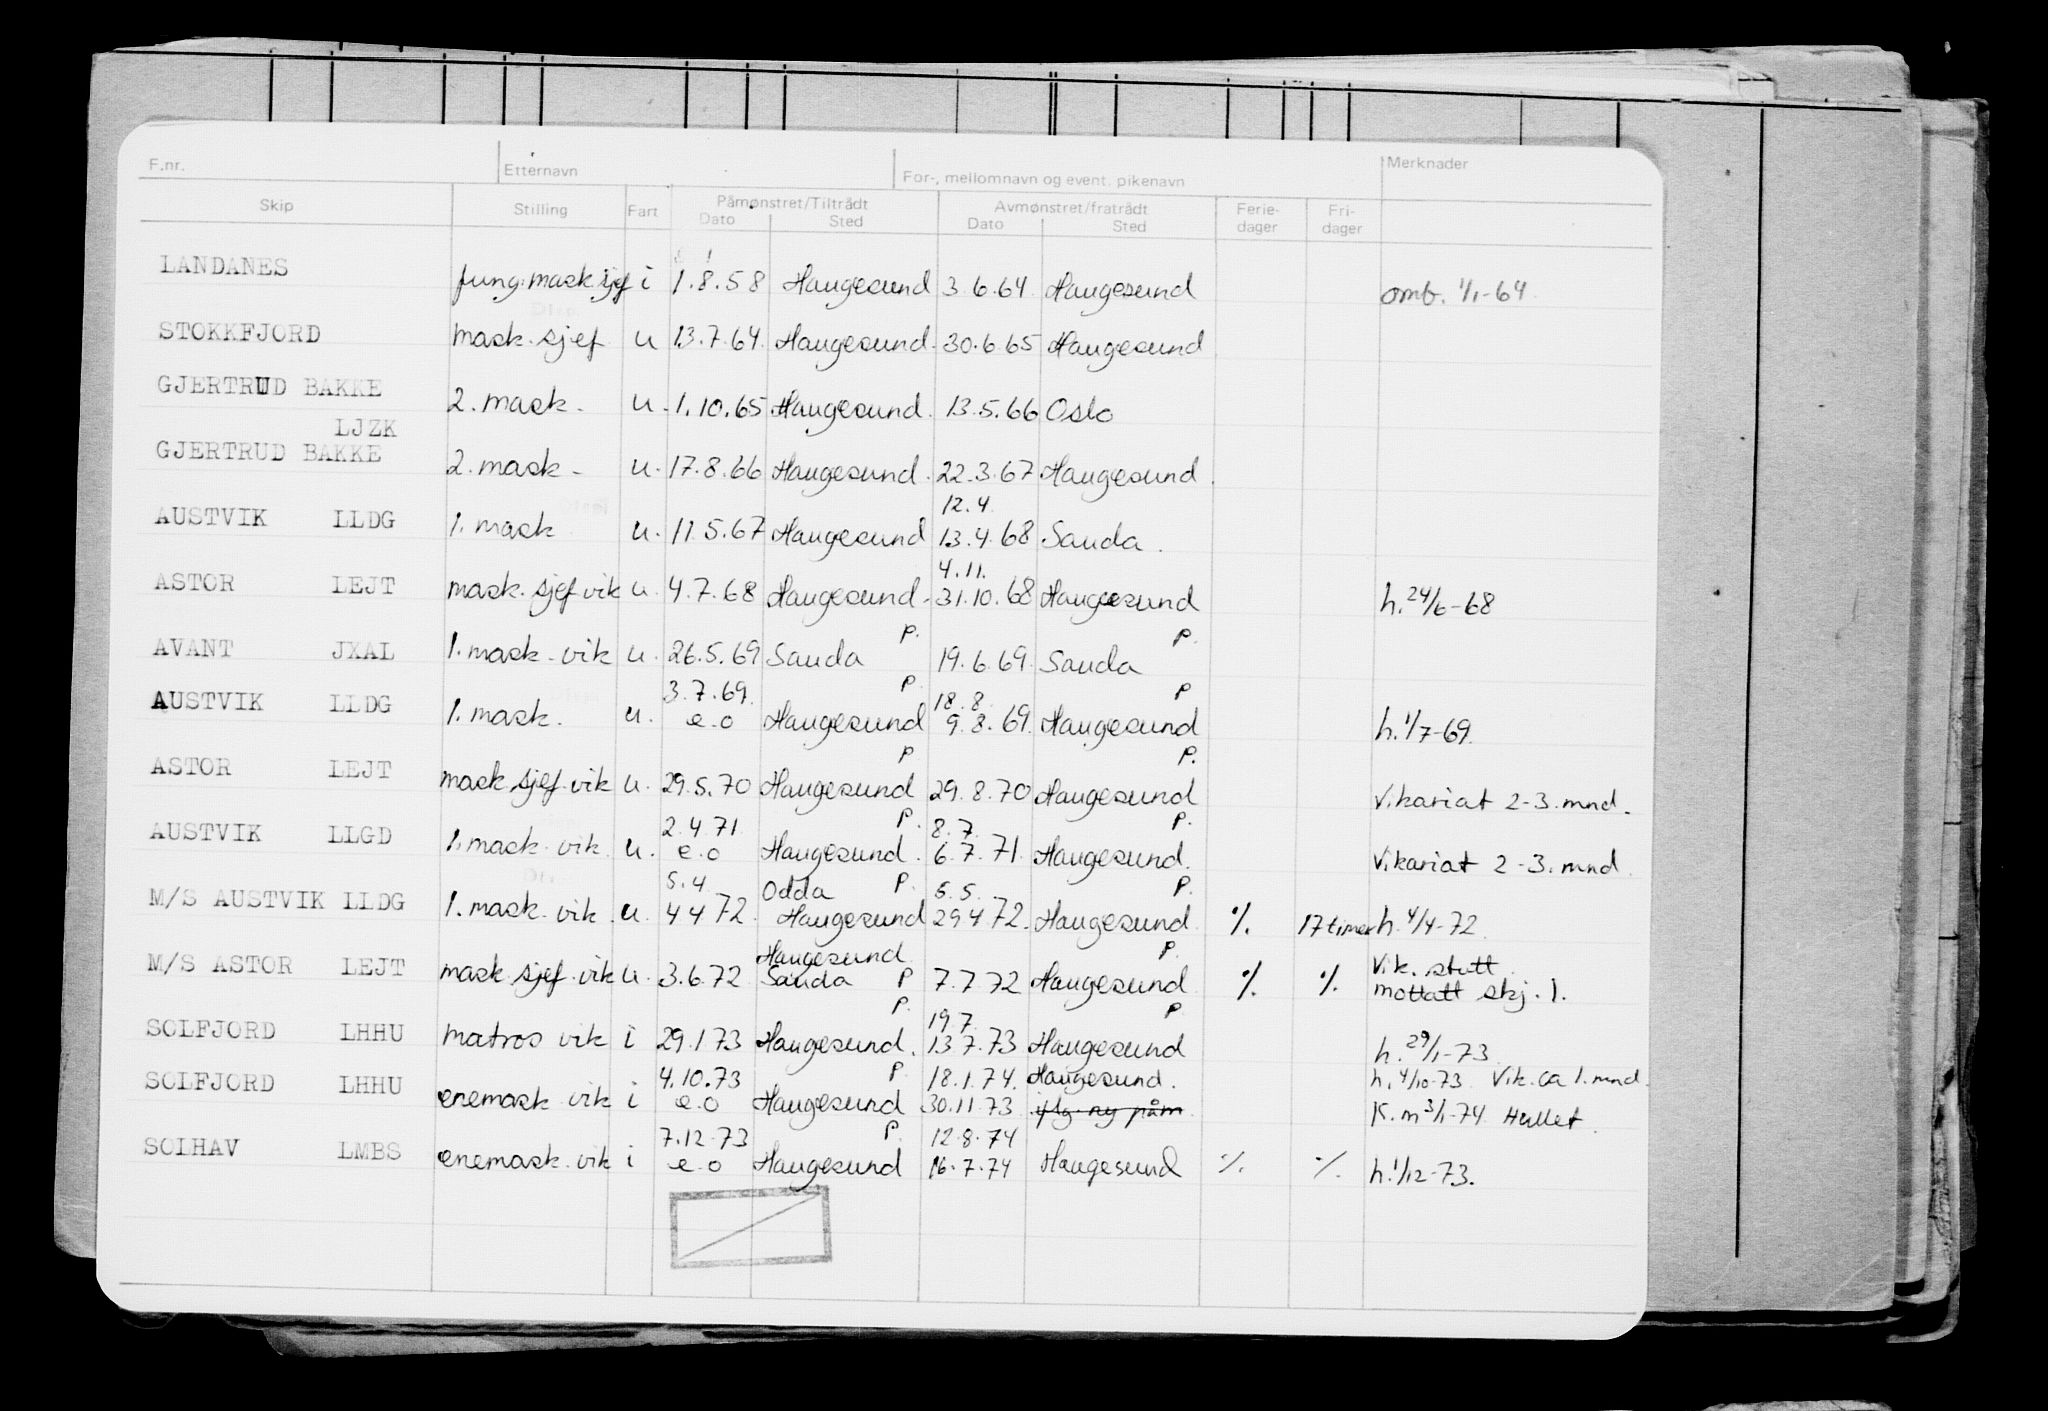 F.nr. Etternavn For-, mellomnavn og event. pikenavn Merknader
Skip Stilling Fart Påmønstret/Tiltrådt Dato Sted Avmønstret/fratrådt Dato Sted Ferie-dager Fri-dager
LANDANES fung. mask sjef i 1.8.58 Haugesund 3.6.64 Haugesund omb. 1/1-64
STOKKFJORD mask. sjef u 13.7.64. Haugesund. 30.6.65 Haugesund
GJERTRUD BAKKE 2. mask. u. 1.10.65 Haugesund. 13.5.66 Oslo
LJZK
GJERTRUD BAKKE 2. mask. u. 17.8.66 Haugesund. 22.3.67 Haugesund.
12.4.
AUSTVIK LLDG 1. mask u. 11.5.67 Haugesund 13.4.68 Sauda.
4.11.
ASTOR LEJT mask. sjef vik u. 4.7.68 Haugesund. 31.10.68 Haugesund h. 24/6-68
P. P.
AVANT JXAL 1. mask. vik u. 26.5.69 Sauda 19.6.69. Sauda
3.7.69. P. 18.8. P
AUSTVIK LLDG 1. mask. u. e.o Haugesund 9.8.69. Haugesund h. 1/7-69.
P P.
ASTOR LEJT mask sjef. vik u. 29.5.70 Haugesund 29.8.70 Haugesund Vikariat 2-3. mnd.
2.4.71. P. 8.7. P.
AUSTVIK LLGD 1. mask. vik. u. e.o Haugesund. 6.7.71. Haugesund. Vikariat 2-3. mnd.
5.4. Odda P. 5.5. P.
M/S AUSTVIK LLDG 1. mask. vik. u. 4 4 72 Haugesund 29 4 72. Haugesund. %. 17 timer h. 4/4-72.
Haugesund. P. Vik. slutt
M/S ASTOR LEJT mask sjef. vik u. 3.6.72 Sauda P 7.7 72 Haugesund %. %. mottatt skj. 1.
P. 19.7. P
SOLFJORD LHHU matros vik i 29.1 73 Haugesund. 13.7.73 Haugesund h. 29/1-73
4.10.73 P. 18.1.74. Haugesund. h. 4/10-73. Vik. ca 1. mnd.
SOLFJORD LHHU enemask vik i e.o Haugesund 30.11.73 iflg. ny påm. K.m 3/1-74 Hullet.
7.12.73 P. 12.8.74
SOLHAV LMBS enemask. vik i e.o Haugesund 16.7.74 Haugesund %. %. h. 1/12-73.